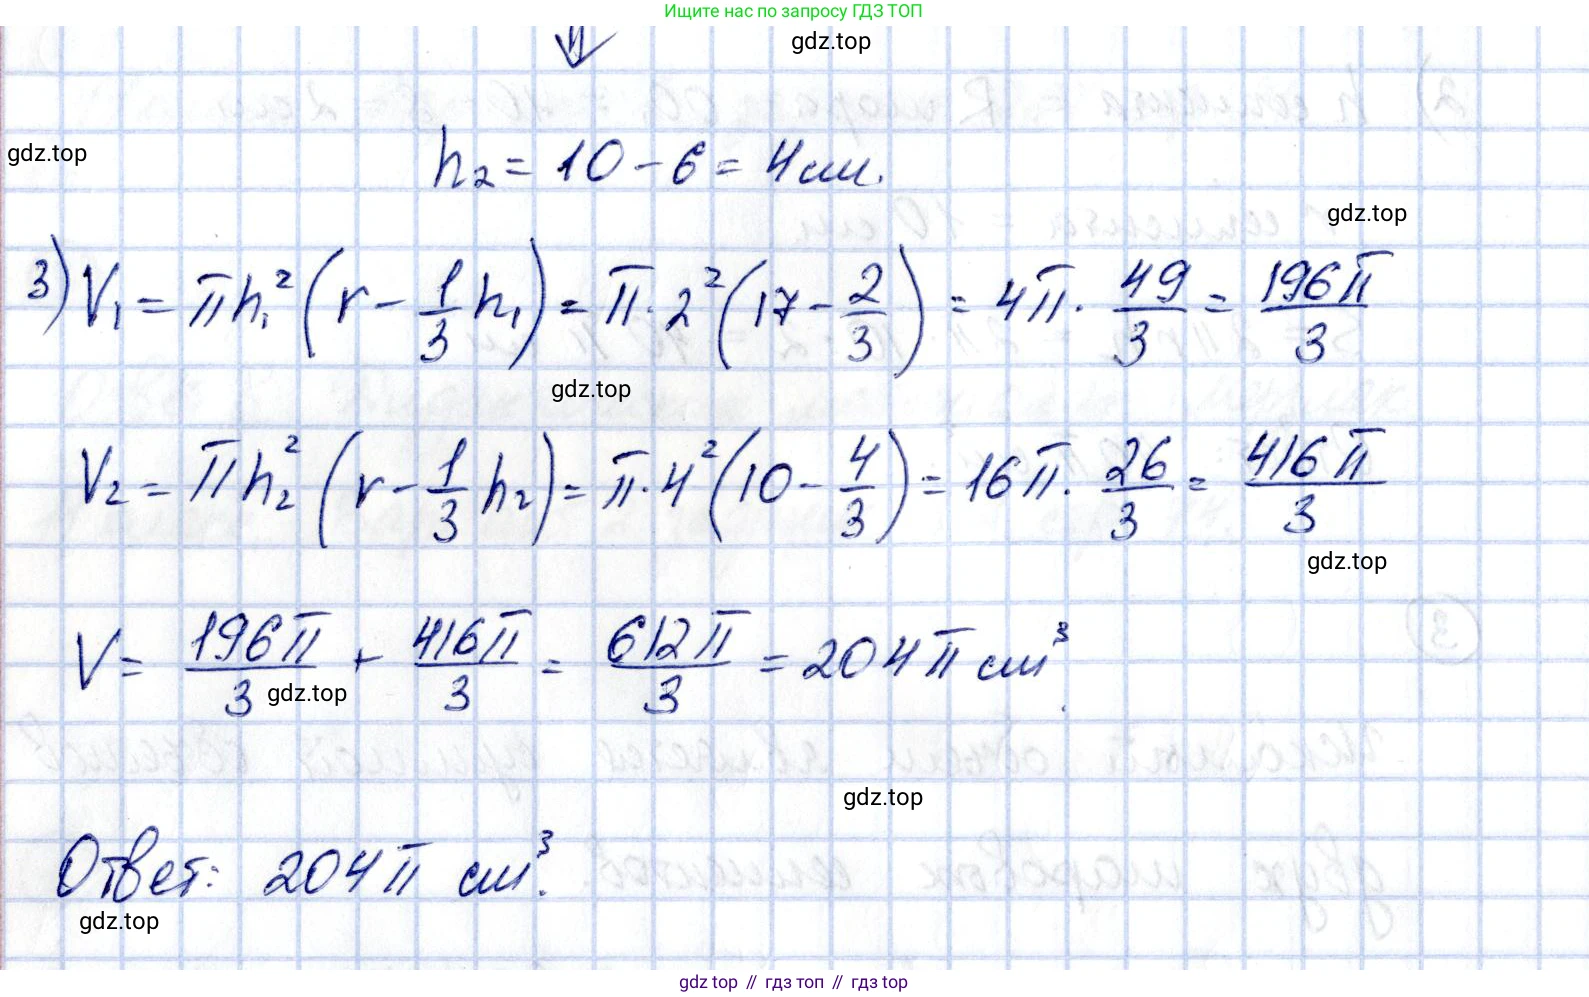 Ищите нас по запросу ГДЗ ТОП
gdz.top
h₂ = 10 - 6 = 4 см.
gdz.top
gdz.top
3) V₁ = πh₁²(r - 1/3 h₁) = π·2²(17 - 2/3) = 4π · 49/3 = 196π/3
gdz.top
V₂ = πh₂²(r - 1/3 h₂) = π·4²(10 - 4/3) = 16π · 26/3 = 416π/3
gdz.top
V = 196π/3 + 416π/3 = 612π/3 = 204π см³.
gdz.top
gdz.top
Ответ: 204π см³.
gdz.top
gdz top // гдз топ // gdz top